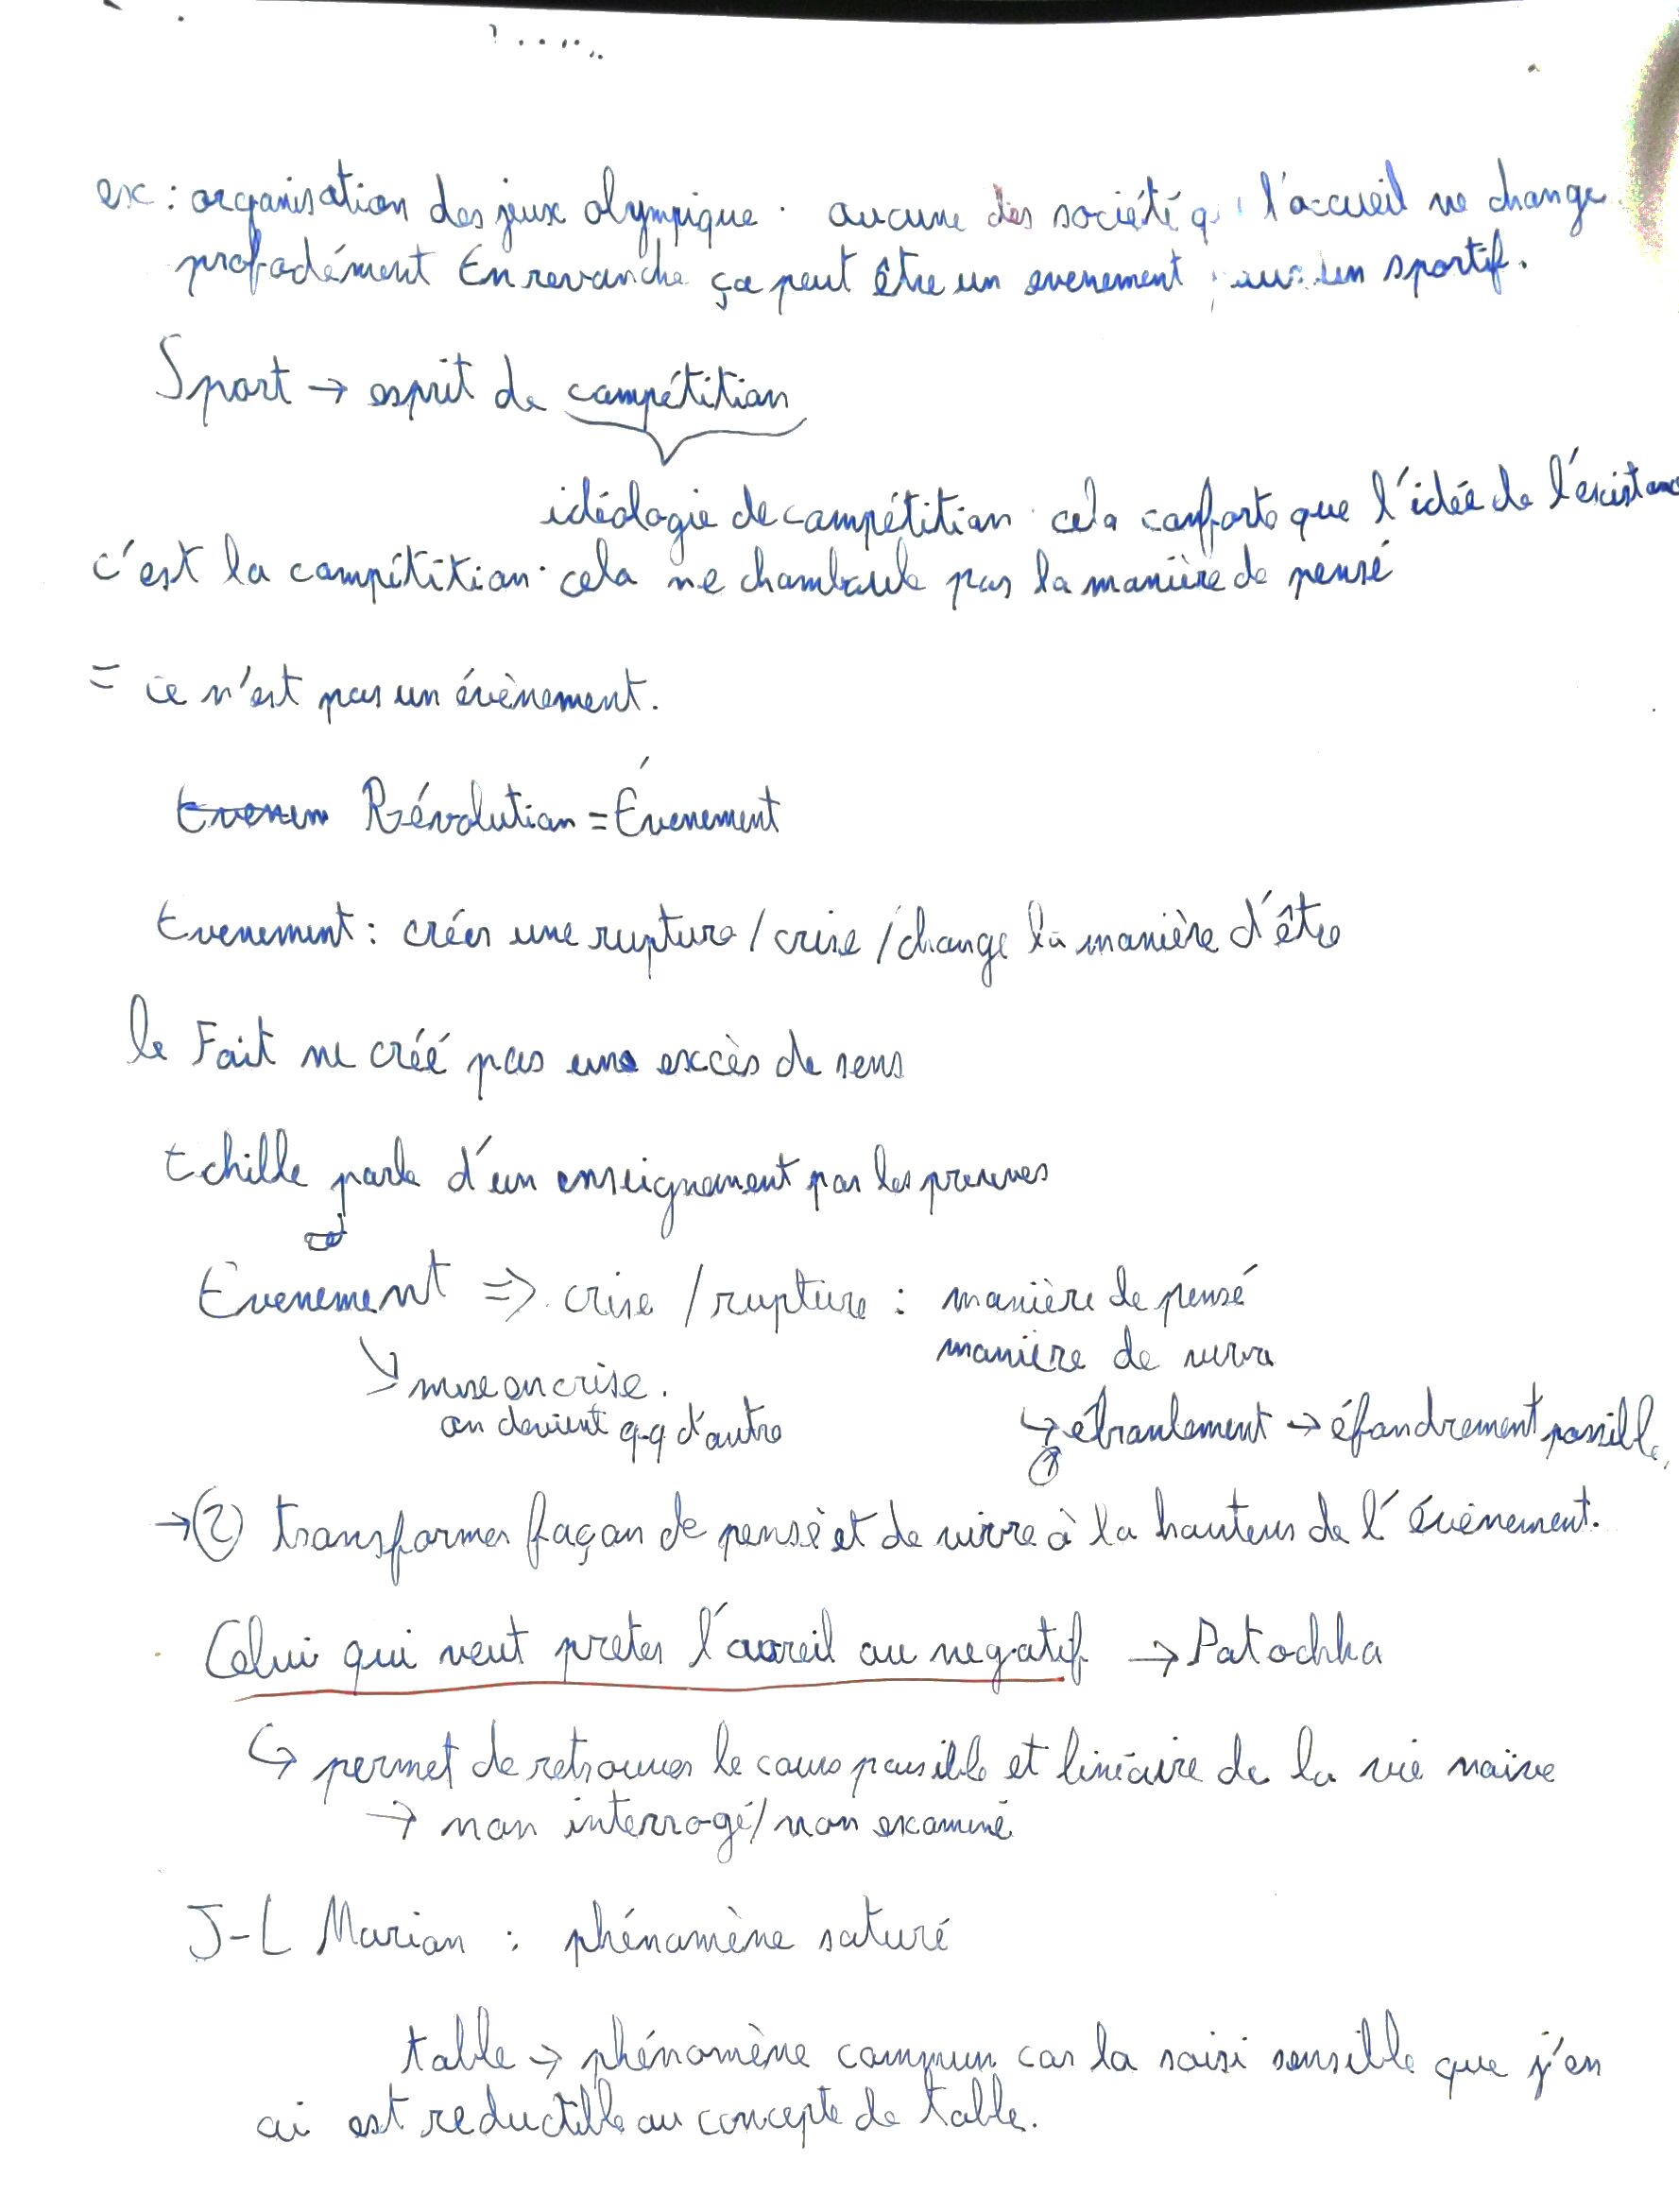 ex : organisation des jeux olympique. aucune des société l'accueil ne change
profodément En revanche ça peut être un evenement un sportif.
Sport → esprit de compétition
idéologie de compétition cela conforte que l'idée de l'existanc
c'est la compétition. cela ne chamboule pas la manière de pensé
= ce n'est pas un évènement.
Evenem Révolution = Évenement
Evenement : créer une rupture / crise / change la manière d'être
le Fait ne créé pas une excès de sens
Echille parle d'un enseignement par les preuves
Evenement => crise / rupture : manière de pensé
manière de vivre
↘ mise en crise.
on devient q-q d'autre
↪ ébranlement → éfondrement possible
① 
→ ② transformer façon de pensé et de vivre à la hauteur de l'évènement.
Celui qui veut prêter l'aureil au negatif → Patochka
↪ permet de retrouver le cours paisible et linéaire de la vie naïve
→ non interrogé / non examiné
J-L Marion : phénomène saturé
table → phénomène commun car la saisi sensible que j'en
ai est reductible au concepte de table.